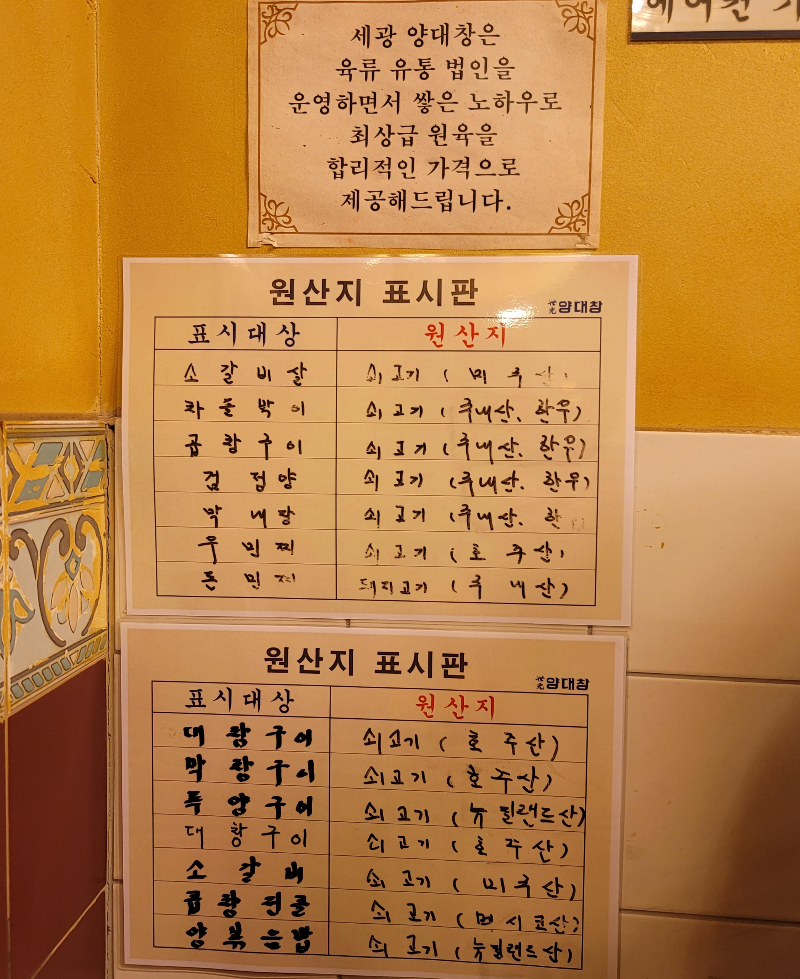 세광 양대창은
육류 유통 법인을
운영하면서 쌓은 노하우로
최상급 원육을
합리적인 가격으로
제공해드립니다.
원산지 표시판
世光 양대창
표시대상 원산지
소갈비살 쇠고기 (미국산)
차돌박이 쇠고기 (국내산. 한우)
곱창구이 쇠고기 (국내산. 한우)
쇠고기 (국내산. 한우)
막내창 쇠고기 (국내산. 한
우민찌 쇠고기 (호주산)
돈민찌 돼지고기 (국내산)
원산지 표시판
世光 양대창
표시대상 원산지
대창구이 쇠고기 (호주산)
막창구이 쇠고기 (호주산)
특양구이 쇠고기 (뉴질랜드산)
대창구이 쇠고기 (호주산)
소갈비 쇠고기 (미국산)
곱창전골 쇠고기 (멕시코산)
양볶음밥 쇠고기 (뉴질랜드산)